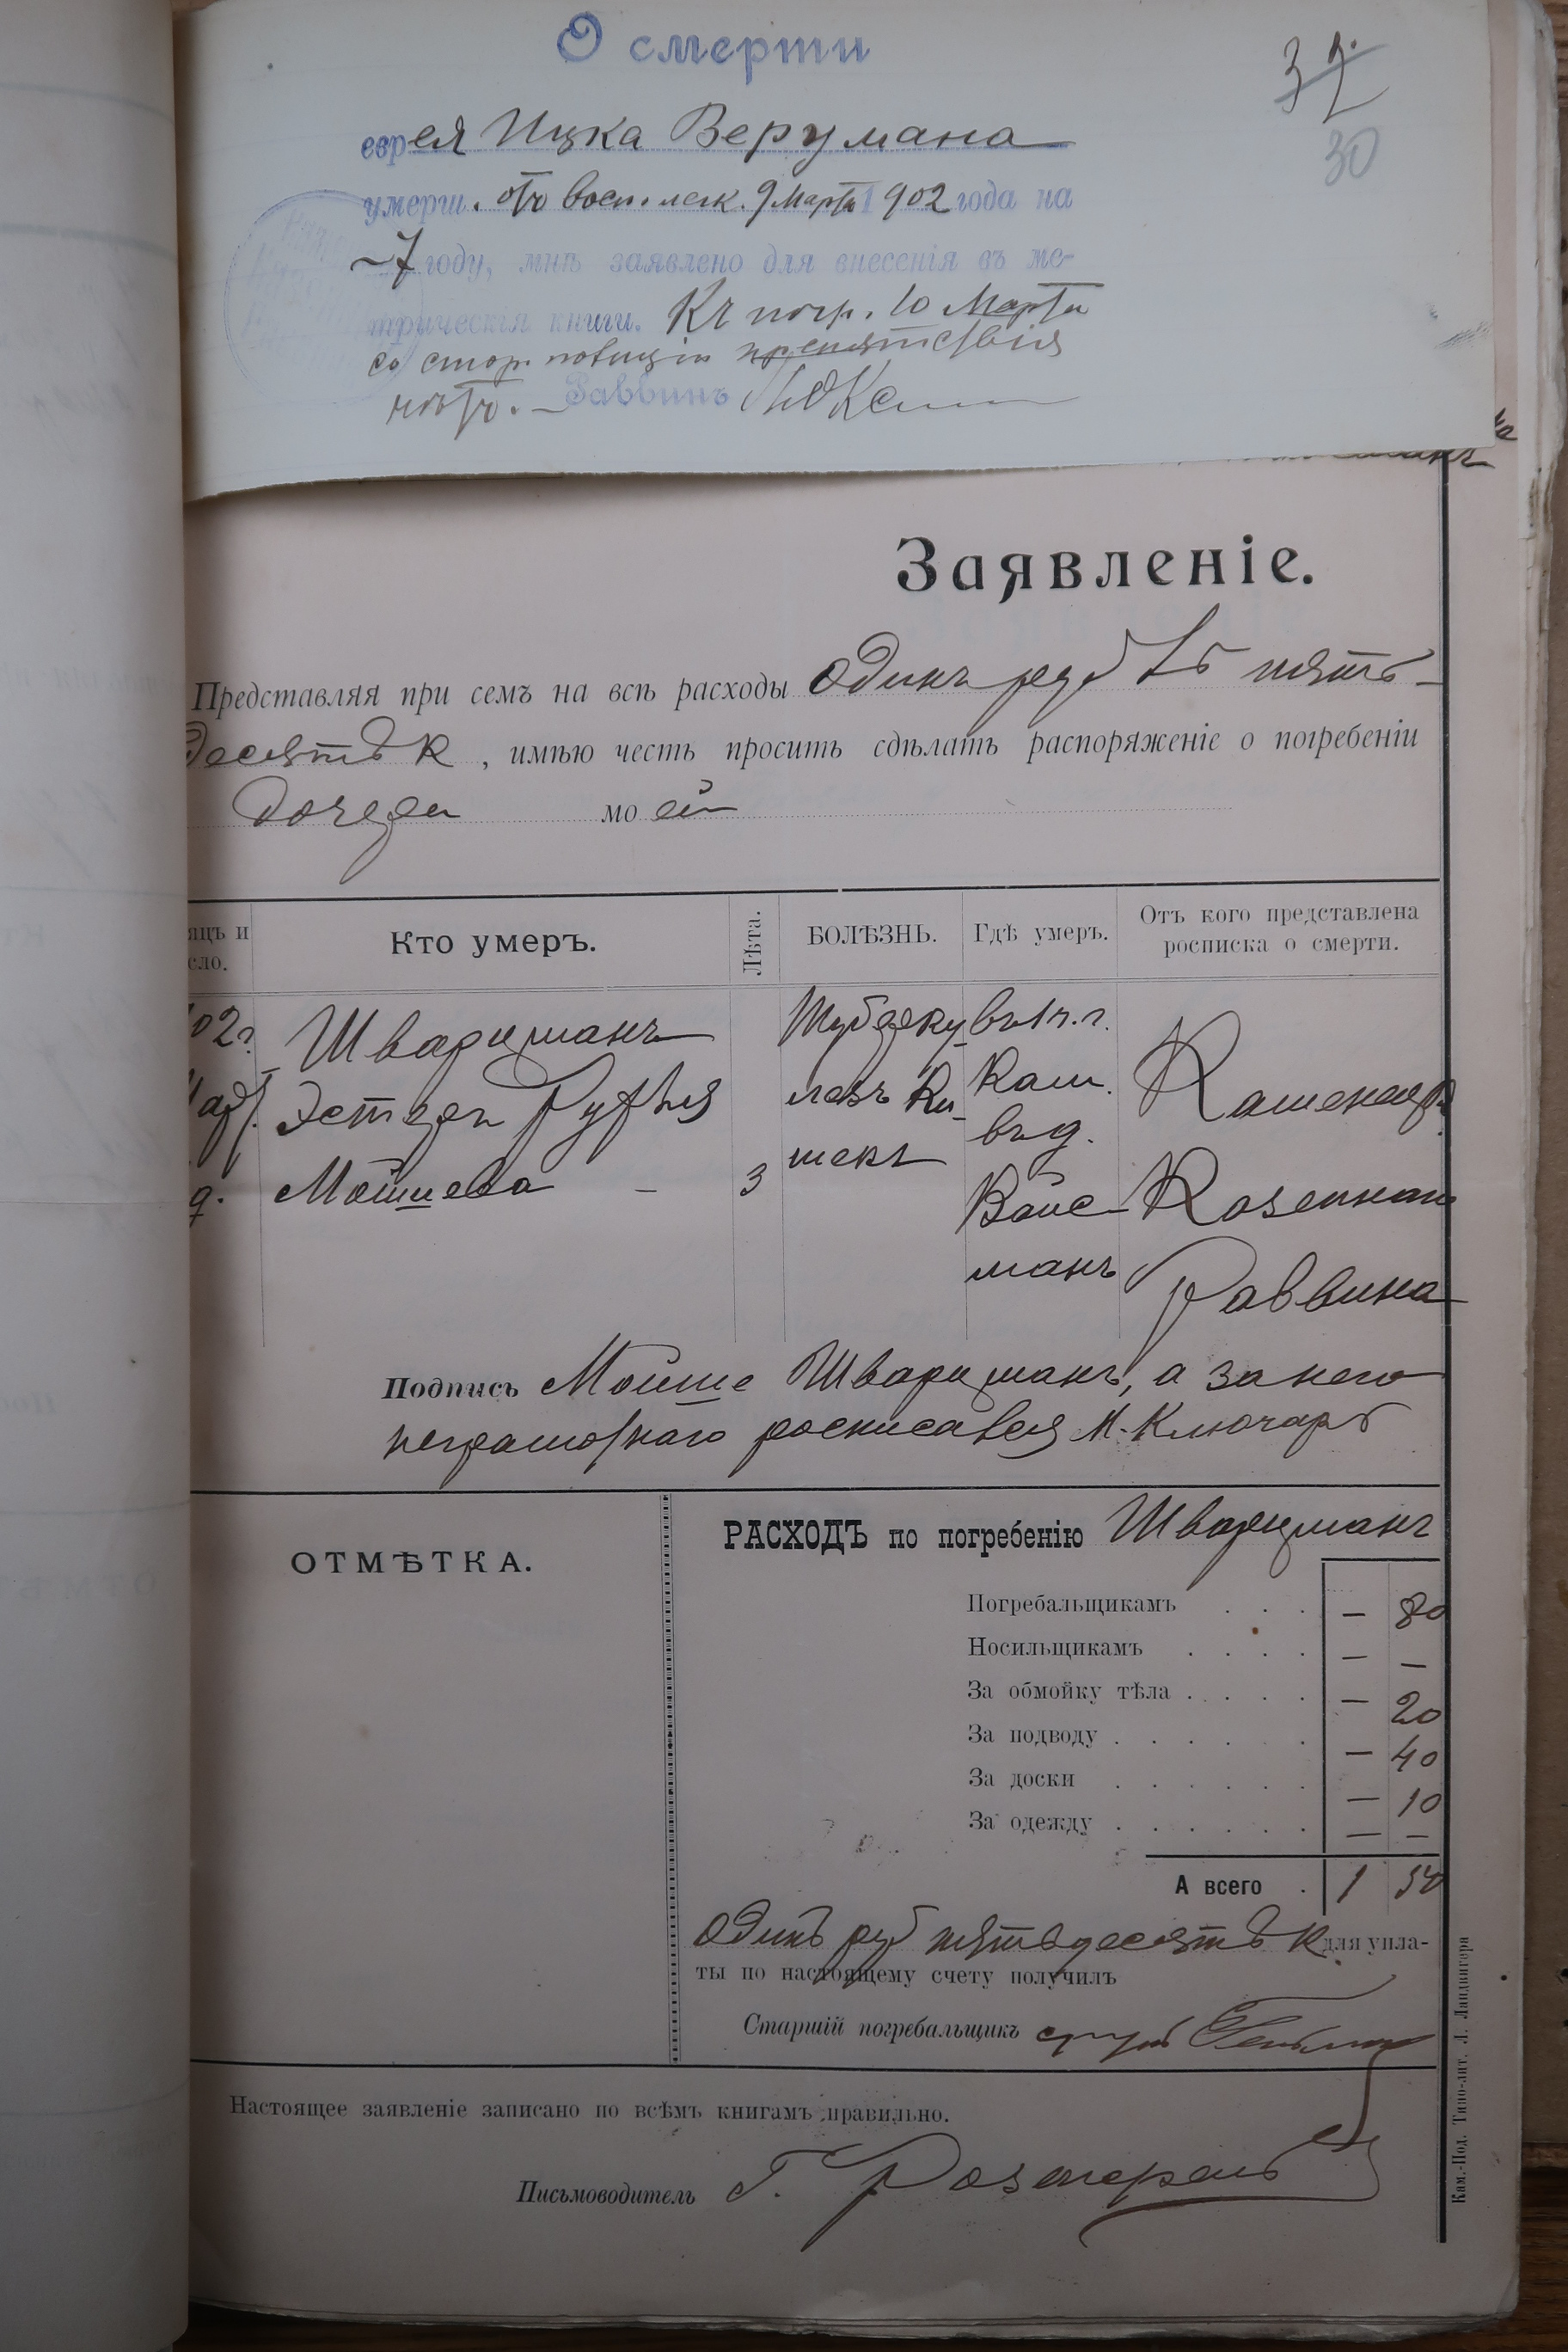 О смерти
37.
еврея Ицка Верумана
30
умерш. отъ восп. легк. 9 Марта 1902 года на
7 году, мнѣ заявлено для внесенія въ ме-
трическія книги. Къ погр. 10 Марта
со стор. полиціи препятствія
нѣтъ. — Раввинъ
Заявленіе.
Представляя при семъ на всѣ расходы Одинъ рубль пять-
десятъ к, имѣю честь просить сдѣлать распоряженіе о погребеніи
дочери моей
яцъ и
сло.
Кто умеръ.
Лѣта.
БОЛѢЗНЬ.
Гдѣ умеръ.
Отъ кого представлена
росписка о смерти.
02г.
Шварцманъ
Эстеръ Рухля
Мошиева — 3
Туберку-
лезъ Ки-
шекъ
въ 1 ч. г.
Кам.
въ д.
Вайс-
манъ
Раввина
Подпись Мойше Шварцманъ, а за него
неграмотнаго росписався М. Ключаръ
ОТМѢТКА.
РАСХОДЪ по погребенію Шварцманъ
Погребальщикамъ . . . — 80
Носильщикамъ . . . . — —
За обмойку тѣла . . . . — 20
За подводу . . . . . . — 40
За доски . . . . . . — 10
За одежду . . . . . . — —
А всего . 1 50
Одинъ руб пятьдесятъ к для упла-
ты по настоящему счету получилъ
Старшій погребальщикъ
Настоящее заявленіе записано по всѣмъ книгамъ правильно.
Письмоводитель Г.
Кам.-Под. Типо-лит. Л. Ландвигера